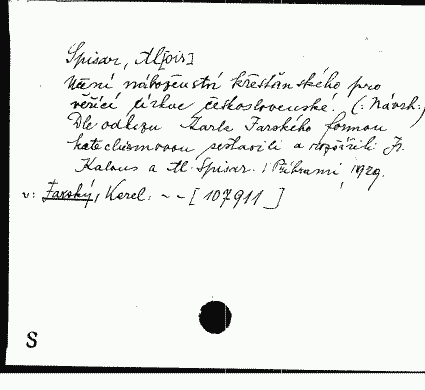 Spisar, Al[ois]
Učení náboženství křesťanského pro
věřící církve československé. (: Návrh :)
Dle odkazu Karla Farského formou
katechismovou sestavili a rozšířili Fr.
Kalous a Al. Spisar. Příbrami, 1929.
v: Farský, Karel: ~ ~ [107911]
S